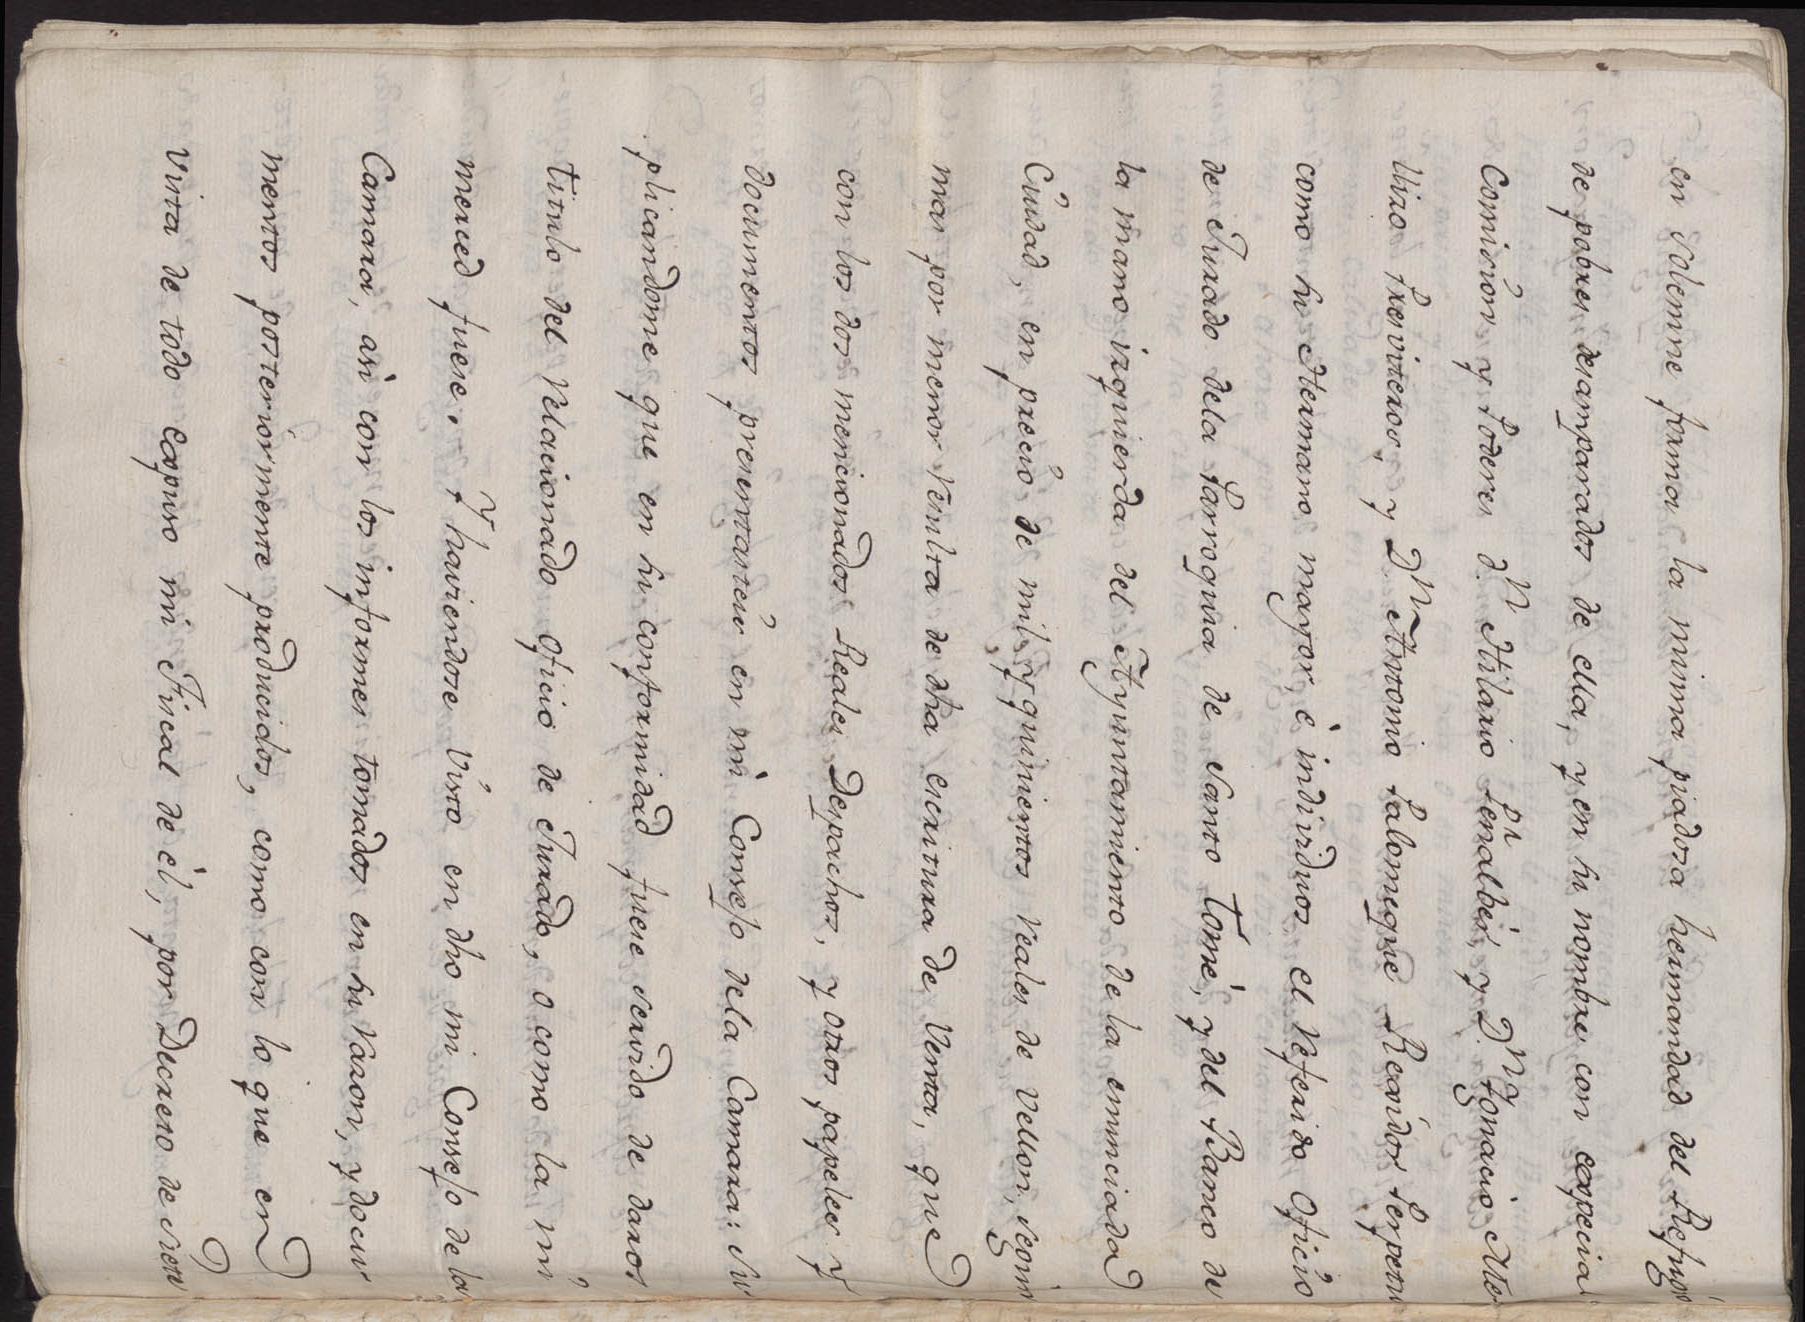 en solemne forma la misma piadosa hermandad del Refugio
de pobres desamparados de ella, y en su nombre con expecial
Comision y Poderes d.n Hilario Penalbér, y D.n Ygnacio
Presviteros, y D.n Antonio Palomeque Rexidor Perpetu
como su Hermano mayor, è individuos el referido Oficio
de Jurado dela Parroquia de Santo Tomé, y del Banco de
la mano izquierda del Ayuntamiento de la enunciada
Ciudad, en precio de mil y quinientos reales de vellon, segun
mas por menor resulta de dha escritura de Venta, que
con los dos mencionados Reales Despachos, y otros papeles y
documentos presentasteis en mi Consejo dela Camara: su
plicandome que en su conformidad fuese servido de daros
titulo del relacionado oficio de Jurado, o como la mi
merced fuese. Y haviendose visto en dho mi Consejo de la
Camara, asi con los informes tomados en su razon, y docu
mentos posteriormente producidos, como con lo que en
vista de todo expuso mi Fiscal de èl, por Decreto de siete